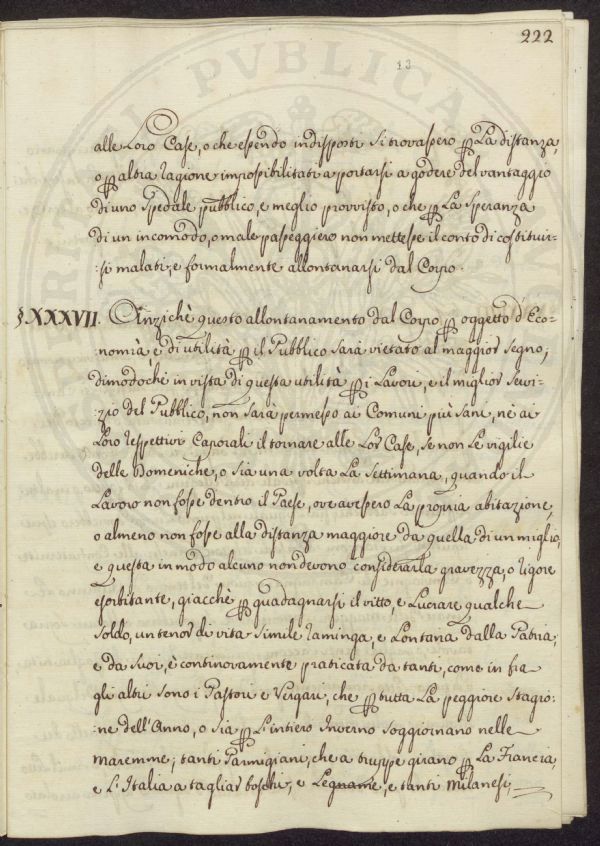 222
13
alle Loro Case, o che essendo indisposti si trovassero per La distanza,
o per altra ragione impossibilitati a portarsi a godere del vantaggio
di uno Spedale pubblico, e meglio provvisto, o che per La Speranza
di un incomodo, o male passeggiero non mettesse il conto di costituir-
:si malati, e formalmente allontanarsi dal Corpo.
§.XXXVII. Anzichè questo allontanamento dal Corpo per oggetto d'Eco-
:nomia, e di utilità per il Pubblico sarà vietato al maggior segno;
dimodochè in vista di questa utilità per i Lavori, e il miglior Servi-
:zio del Pubblico, non sarà permesso ai Comuni più sani, nè ai
Loro respettivi Caporali il tornare alle Lor Case, se non Le vigilie
delle Domeniche, o sia una volta La Settimana, quando il
Lavoro non fosse dentro il Paese, ove avessero La propria abitazione,
o almeno non fosse alla distanza maggiore da quella di un miglio,
e questa in modo alcuno non devono considerarla gravezza, o rigore
esorbitante, giacchè per guadagnarsi il vitto, e Lucrare qualche
soldo, un tenor di vita simile raminga, e Lontana dalla Patria,
e da Suoi, è continovamente praticata da tanti, come in fra
gli altri sono i Pastori e Vergari, che per tutta La peggiore Stagio:
:ne dell'Anno, o sia per L'intiero Inverno soggiornano nelle
maremme; tanti Parmigiani, che a truppe girano per La Francia,
e L'Italia a tagliar boschi, e Legname, e tanti Milanesi,
PVBLICA